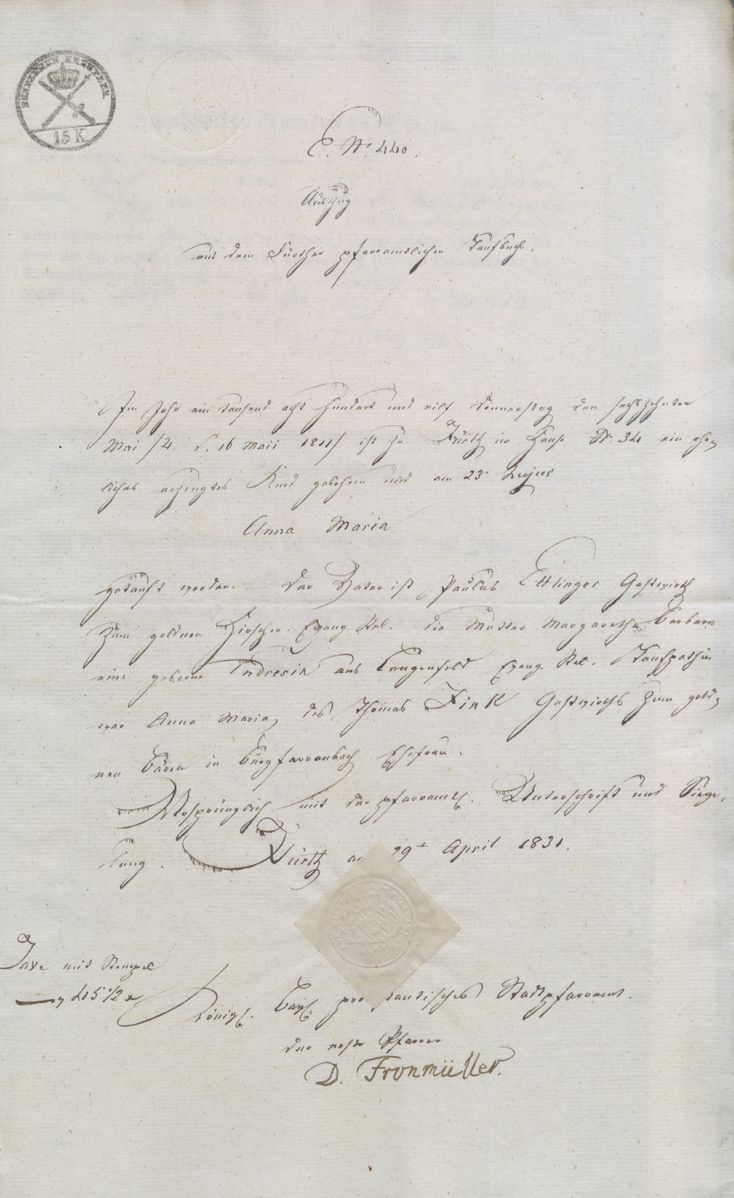 FUNFZEHEN KREUZER
15 K
E. Nr. 440.
Auszug
aus dem Fürther pfarramtlichen Taufbuch.
Im Jahr ein tausend acht hundert und eilf Donnerstag den sechzehnten
Mai /: d. 16 Maii 1811 :/ ist zu Fürth im Haus Nr. 34 ein ehe¬
liches erzeugtes Kind geboren und am 23n hujus
Anna Maria
getauft worden. Der Vater ist Paulus Ettlinger Gastwirth
zum goldnen Hirschen Evang. Rel. die Mutter Margaretha Barbara
eine geborne aus Langenfeld Evang. Rel. Taufpathin
war Anna Maria, des Thomas Fink Gastwirths zum gold¬
nen Bären in Burgfarrnbach Ehefrau.
Ursprünglich mit der pfarramtl. Unterschrift und Siege¬
lung. Fürth am 29t April 1831.
Taxe mit Stempel
Königl. Bay. protestantisches Stadtpfarramt.
der erste Pfarrer
D. Fronmüller.